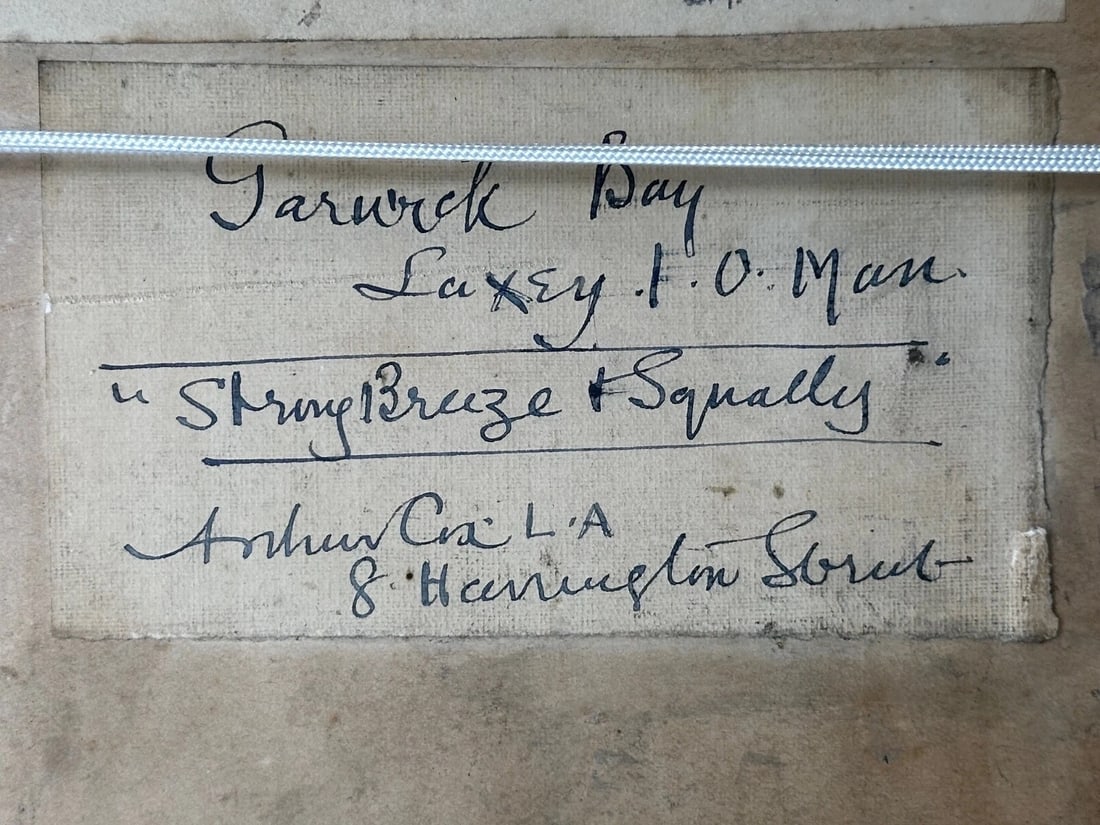 Garwick Bay
Laxey. I. O. Man.
"Strong Breeze & Squally"
Arthur Cox L.A
8. Harrington Street